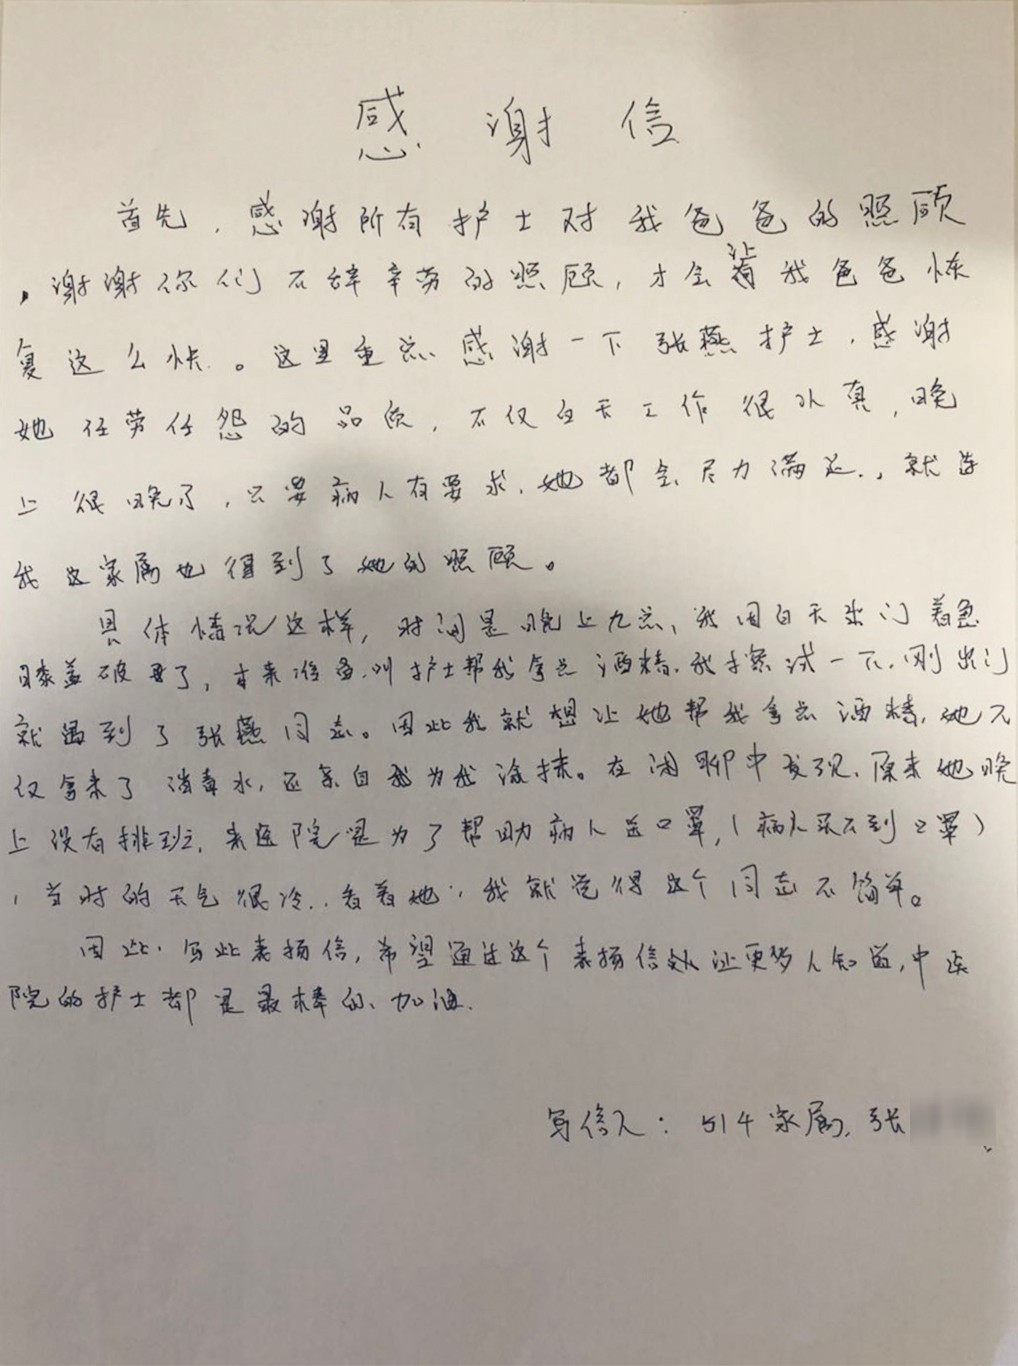 感谢信
首先，感谢所有护士对我爸爸的照顾
，谢谢你们不辞辛劳的照顾，才会让我爸爸恢
复这么快。这里重点感谢一下张燕护士，感谢
她任劳任怨的品质，不仅白天工作很认真，晚
上很晚了，只要病人有要求，她都会尽力满足，就连
我这家属也得到了她的照顾。
具体情况这样，时间是晚上九点，我因白天出门着急
膝盖破皮了，本来准备叫护士帮我拿点酒精，我擦试一下，刚出门
就遇到了张燕同志。因此我就想让她帮我拿点酒精，她不
仅拿来了消毒水，还亲自我为我涂抹。在闲聊中发现，原来她晚
上没有排班，来医院是为了帮助病人送口罩，（病人买不到口罩）
，当时的天气很冷，看着她，我就觉得这个同志不简单。
因此，写此表扬信，希望通过这个表扬信让更多人知道，中医
院的护士都是最棒的、加油.
写信人：514家属，张